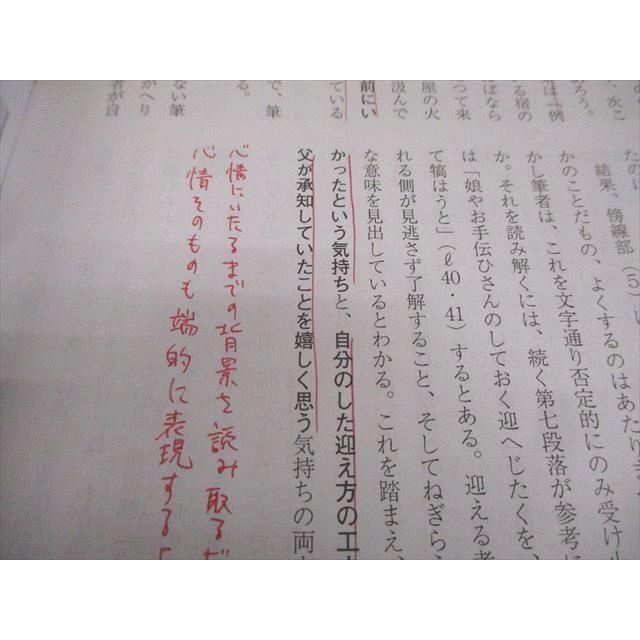 、次こ
ろう。
は「例
る宿の
ばなら
つて来
屋の火
汲んで
前にい
ている
で、筆
る。
ない筆
がへり
者が自
結果、傍線部(5)
かのことだもの、よくするのはあたりま
かし筆者は、これを文字通り否定的にのみ受け止
か。それを読み解くには、続く第七段落が参考に
は「娘やお手伝ひさんのしておく迎へじたくを、
て犒はうと」(ℓ40・41)するとある。迎える者
れる側が見逃さず了解すること、そしてねぎら
な意味を見出しているとわかる。これを踏まえ、
かったという気持ちと、自分のした迎え方の工
父が承知していたことを嬉しく思う気持ちの両
心情にいたるまでの背景を読み取るだ
心情そのものも端的に表現する